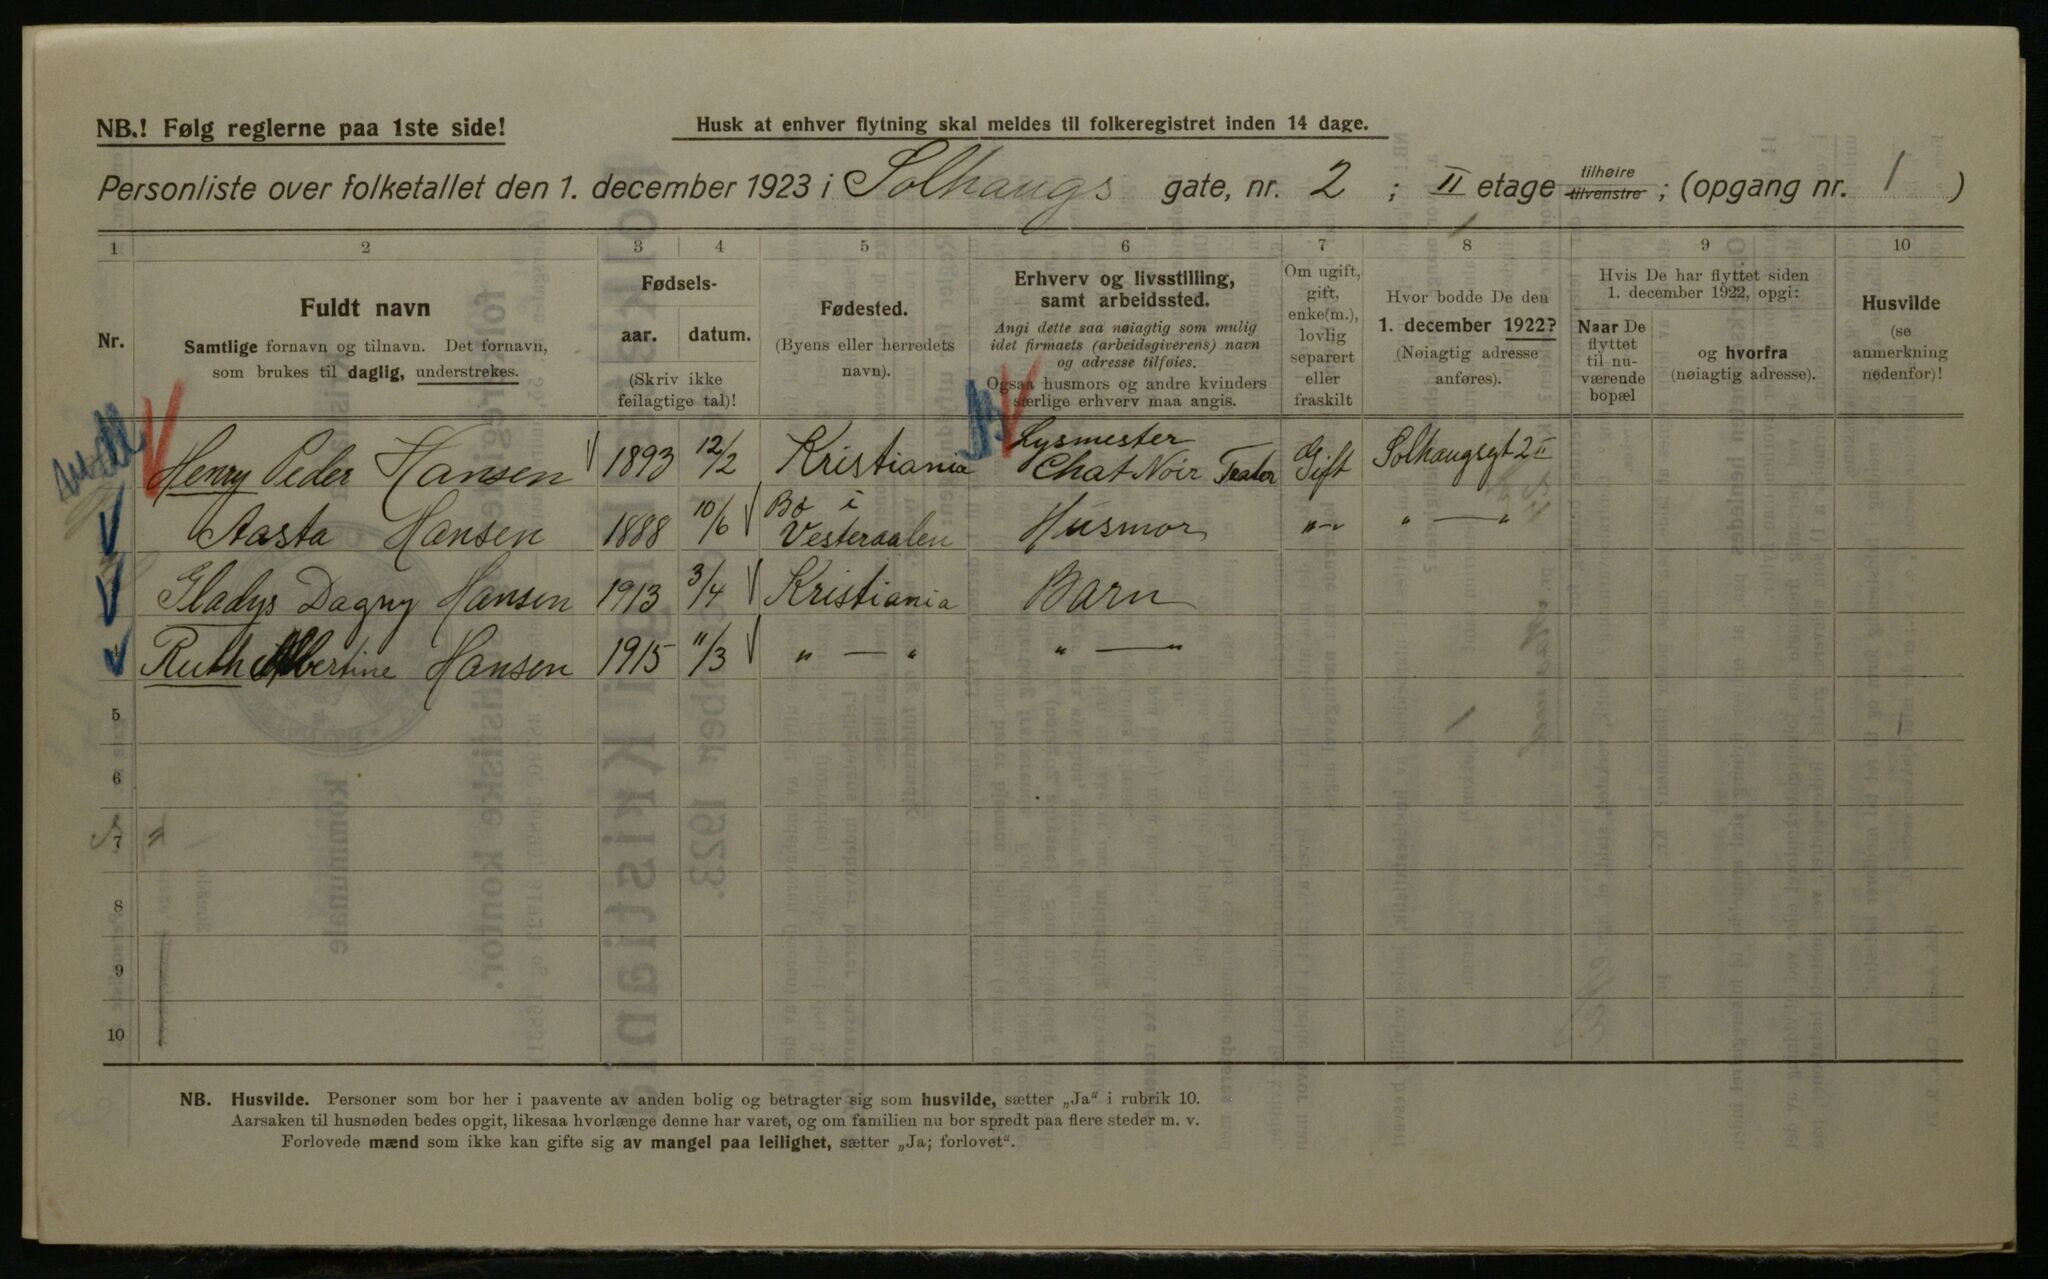 NB.! Følg reglerne paa 1ste side!
Husk at enhver flytning skal meldes til folkeregistret inden 14 dage.
Personliste over folketallet den 1. december 1923 i Solhaugs gate, nr. 2 ; II etage tilhøire tilvenstre ; (opgang nr. 1 )
1 2 3 4 5 6 7 8 9 10
Nr.
Fuldt navn
Samtlige fornavn og tilnavn. Det fornavn,
som brukes til daglig, understrekes.
Fødsels-
aar. datum.
(Skriv ikke
feilagtige tal)!
Fødested.
(Byens eller herredets
navn).
Erhverv og livsstilling,
samt arbeidssted.
Angi dette saa nøiagtig som mulig
idet firmaets (arbeidsgiverens) navn
og adresse tilføies.
Ogsaa husmors og andre kvinders
særlige erhverv maa angis.
Om ugift,
gift,
enke(m.),
lovlig
separert
eller
fraskilt
Hvor bodde De den
1. december 1922?
(Nøiagtig adresse
anføres).
Hvis De har flyttet siden
1. december 1922, opgi:
Naar De
flyttet
til nu-
værende
bopæl
og hvorfra
(nøiagtig adresse).
Husvilde
(se
anmerkning
nedenfor)!
Henry Peder Hansen 1893 12/2 Kristiania Lysmester Chat Noir Teater Gift Solhaugsgt 2 II
Aasta Hansen 1888 10/6 Bø i Vesteraalen Husmor „–„ „ — „
Gladys Dagny Hansen 1913 3/4 Kristiania Barn
4 Ruth Albertine Hansen 1915 11/3 „ — „ „ — „
5
6
7
8
9
10
NB. Husvilde. Personer som bor her i paavente av anden bolig og betragter sig som husvilde, sætter „Ja“ i rubrik 10.
Aarsaken til husnøden bedes opgit, likesaa hvorlænge denne har varet, og om familien nu bor spredt paa flere steder m. v.
Forlovede mænd som ikke kan gifte sig av mangel paa leilighet, sætter „Ja; forlovet“.